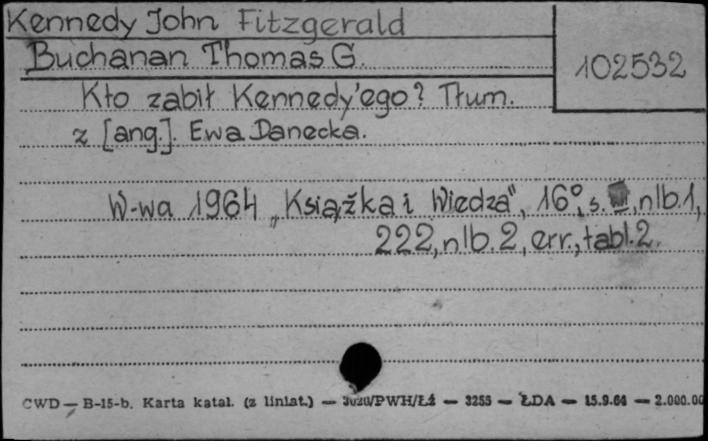 Kennedy John Fitzgerald
Buchanan Thomas G.
102532
Kto zabił Kennedy'ego? Tłum.
z [ang.]. Ewa Danecka.
W-wa 1964 „Książka i Wiedza", 16°, s. , nlb.1,
222, nlb. 2, err., tabl. 2.
CWD — B-15-b. Karta katal. (z liniat.) — /PWH/Łź — 3255 — ŁDA — 15.9.64 — 2.000.00